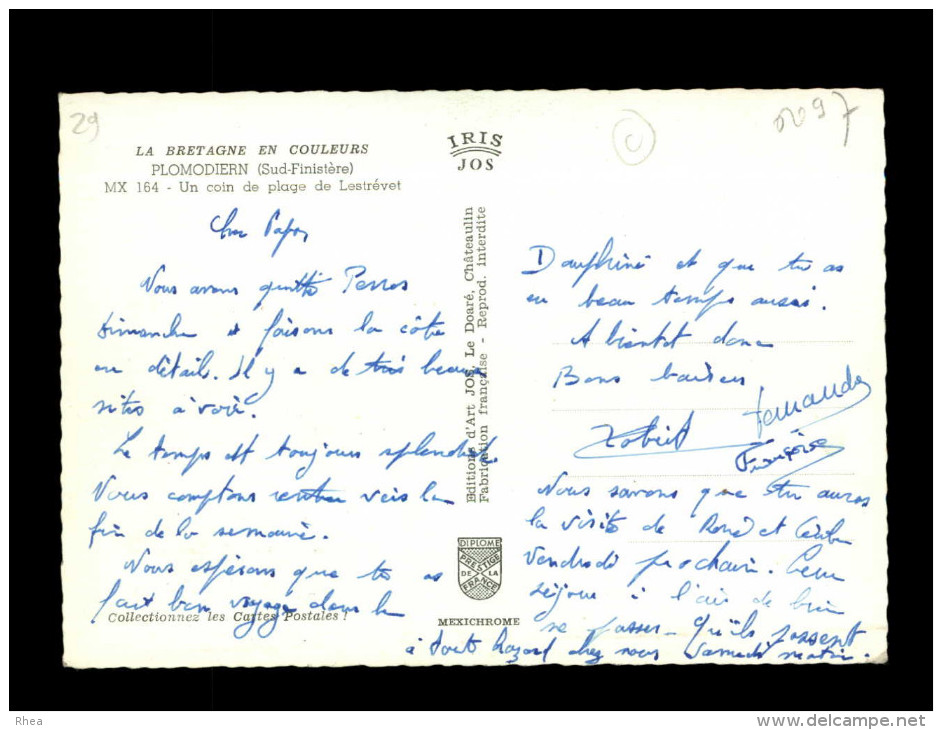 29
0297
C
LA BRETAGNE EN COULEURS
PLOMODIERN (Sud-Finistère)
MX 164 - Un coin de plage de Lestrévet
IRIS
JOS
Editions d'Art JOS, Le Doaré, Châteaulin
Fabrication française - Reprod. interdite
Cher Papa,
Nous avons quitté Perros
dimanche et faisons la côte
en détail. Il y a de très beaux
sites à voir.
Le temps est toujours splendide.
Nous comptons rentrer vers la
fin de la semaine.
Nous espérons que tu as
fait bon voyage dans le
Dauphiné et que tu as
eu beau temps aussi.
A bientot donc
Bons baisers
Fernande
Françoise
Nous savons que tu auras
la visite de René et
Vendredi prochain. Leur
séjour à l'air de bien
se passer - Qu'ils passent
à tout hazard chez nous Samedi matin.
DIPLOME
PRESTIGE
DE LA
FRANCE
Collectionnez les Cartes Postales !
MEXICHROME
Rhea
www.delcampe.net